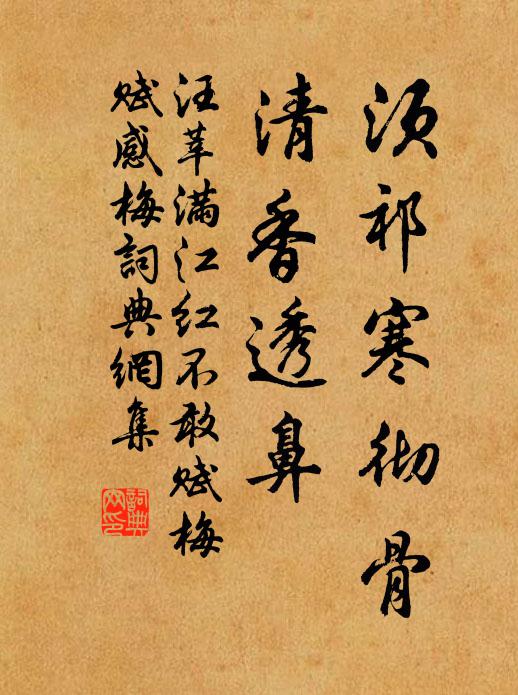 须祁寒彻骨
清香透鼻
汪莘满江红不敢赋梅
赋感梅詞典網集
詞典网印